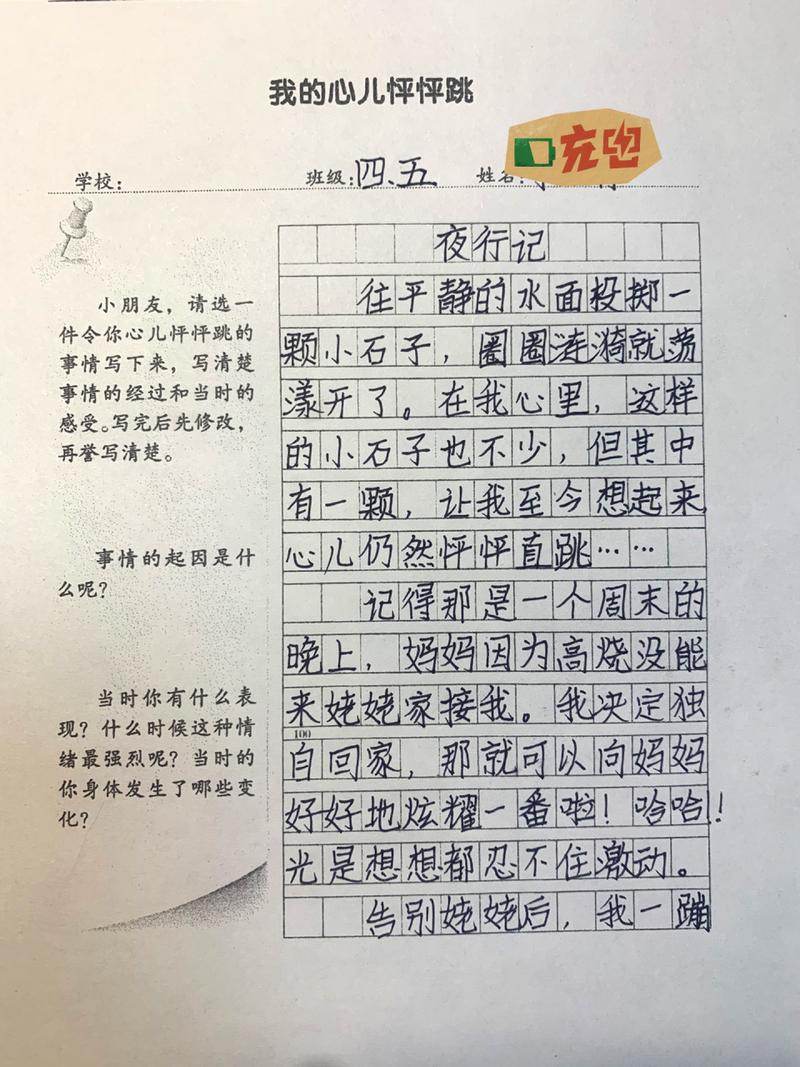 我的心儿怦怦跳
充电
学校：
班级：四、五
姓名：
夜行记
小朋友，请选一
件令你心儿怦怦跳的
事情写下来，写清楚
事情的经过和当时的
感受。写完后先修改，
再誊写清楚。
事情的起因是什
么呢？
当时你有什么表
现？什么时候这种情
绪最强烈呢？当时的
你身体发生了哪些变
化？
往平静的水面投掷一
颗小石子，圈圈涟漪就荡
漾开了。在我心里，这样
的小石子也不少，但其中
有一颗，让我至今想起来
心儿仍然怦怦直跳……
记得那是一个周末的
晚上，妈妈因为高烧没能
来姥姥家接我。我决定独
100
自回家，那就可以向妈妈
好好地炫耀一番啦！哈哈！
光是想想都忍不住激动。
告别姥姥后，我一蹦